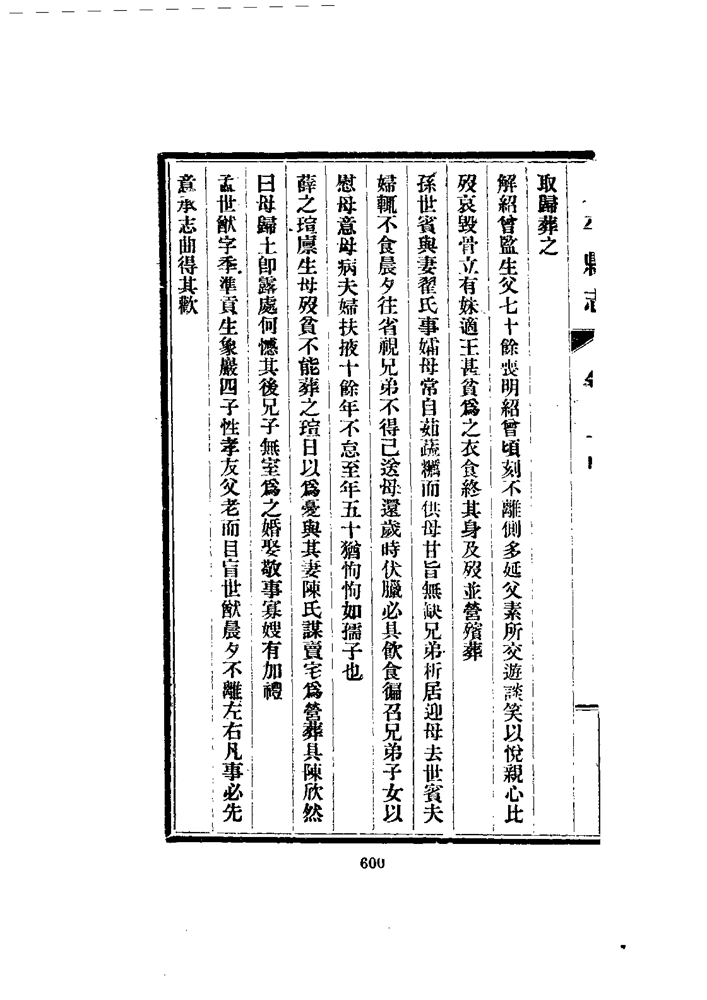 縣志
取歸葬之
解紹曾監生父七十餘喪明紹曾頃刻不離側多延父素所交遊談笑以悅親心比
歿哀毀骨立有妹適王甚貧爲之衣食終其身及歿並營殯葬
孫世賓與妻翟氏事孀母常自茹蔬糲而供母甘旨無缺兄弟析居迎母去世賓夫
婦輒不食晨夕往省視兄弟不得已送母還歲時伏臘必具飲食徧召兄弟子女以
慰母意母病夫婦扶掖十餘年不怠至年五十猶恂恂如孺子也
薛之瑄廩生母歿貧不能葬之瑄日以爲憂與其妻陳氏謀賣宅爲營葬具陳欣然
曰母歸土卽露處何憾其後兄子無室爲之婚娶敬事寡嫂有加禮
孟世猷字季準貢生象巖四子性孝友父老而目盲世猷晨夕不離左右凡事必先
意承志曲得其歡
600